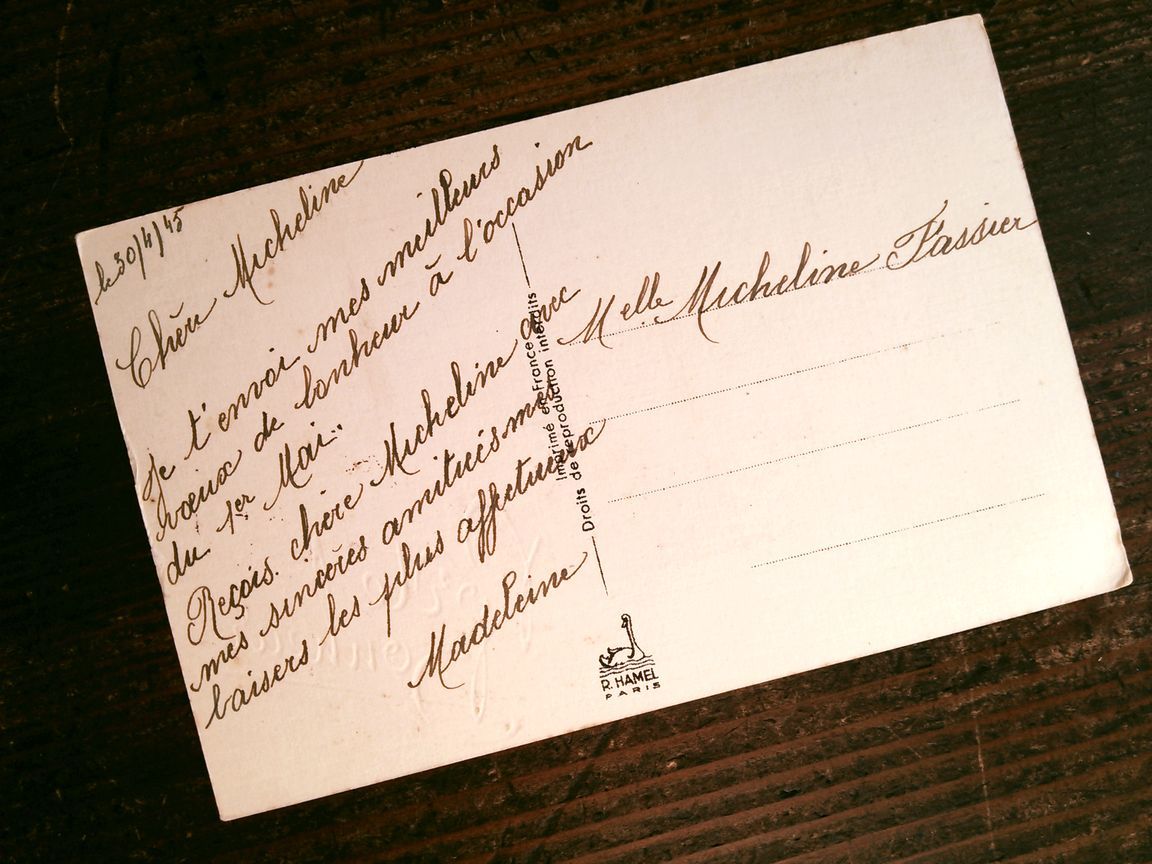 le 30/4/45
Chère Micheline
Je t'envoi mes meilleurs
vœux de bonheur à l'occasion
du 1er Mai.
Reçois chère Micheline avec
mes sincères amitués mes
baisers les plus affectueux
Madeleine
Imprimé en France
Droits de reproduction interdits
R. HAMEL
PARIS
Melle Micheline Fassier